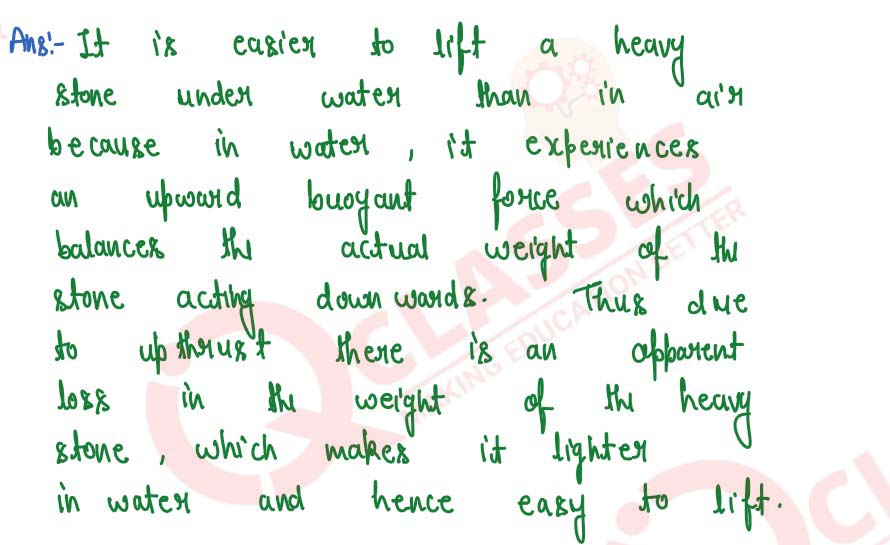 Ans:- It is easier to lift a heavy
stone under water than in air
because in water, it experiences
an upward buoyant force which
balances the actual weight of the
stone acting downwards. Thus due
to upthrust there is an apparent
loss in the weight of the heavy
stone, which makes it lighter
in water and hence easy to lift.
CLASSES
MAKING EDUCATION BETTER